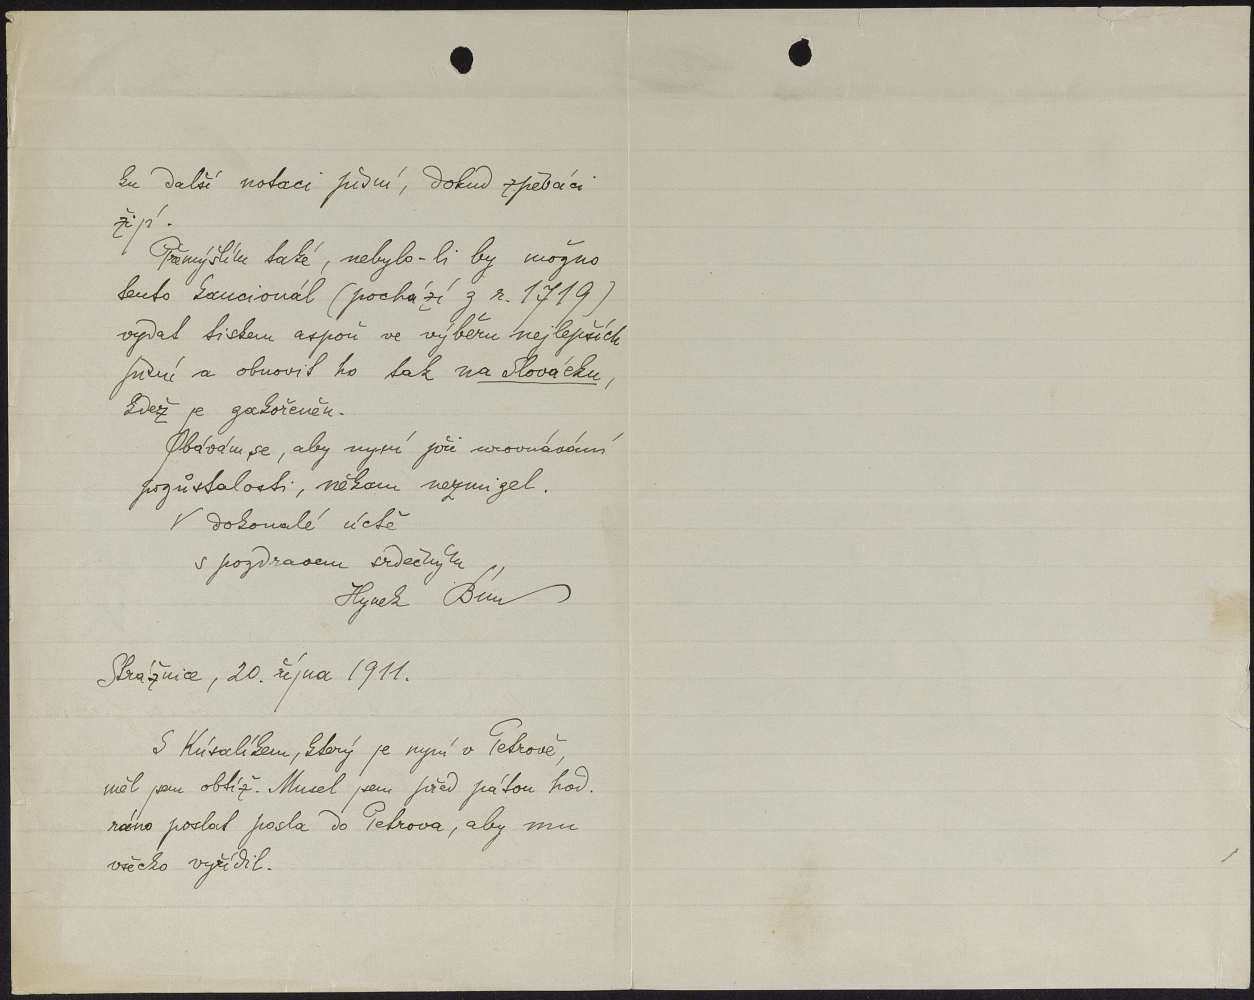 ku další notaci písní, dokud zpěváci
žijí.
Přemýšlím také, nebylo-li by možno
tento kancionál (pochází z r. 1719)
vydat tiskem aspoň ve výběru nejlepších
písní a obnovit ho tak na Slovácku,
kdež je zakořeněn.
Obávám se, aby nyní při urovnávání
pozůstalosti, někam nezmizel.
V dokonalé úctě
s pozdravem srdečným
Hynek Bím
Strážnice, 20. října 1911.
S Kúsalíkem, který je nyní v Petrově,
měl jsem obtíž. Musel jsem před pátou hod.
ráno poslat posla do Petrova, aby mu
všecko vyřídil.